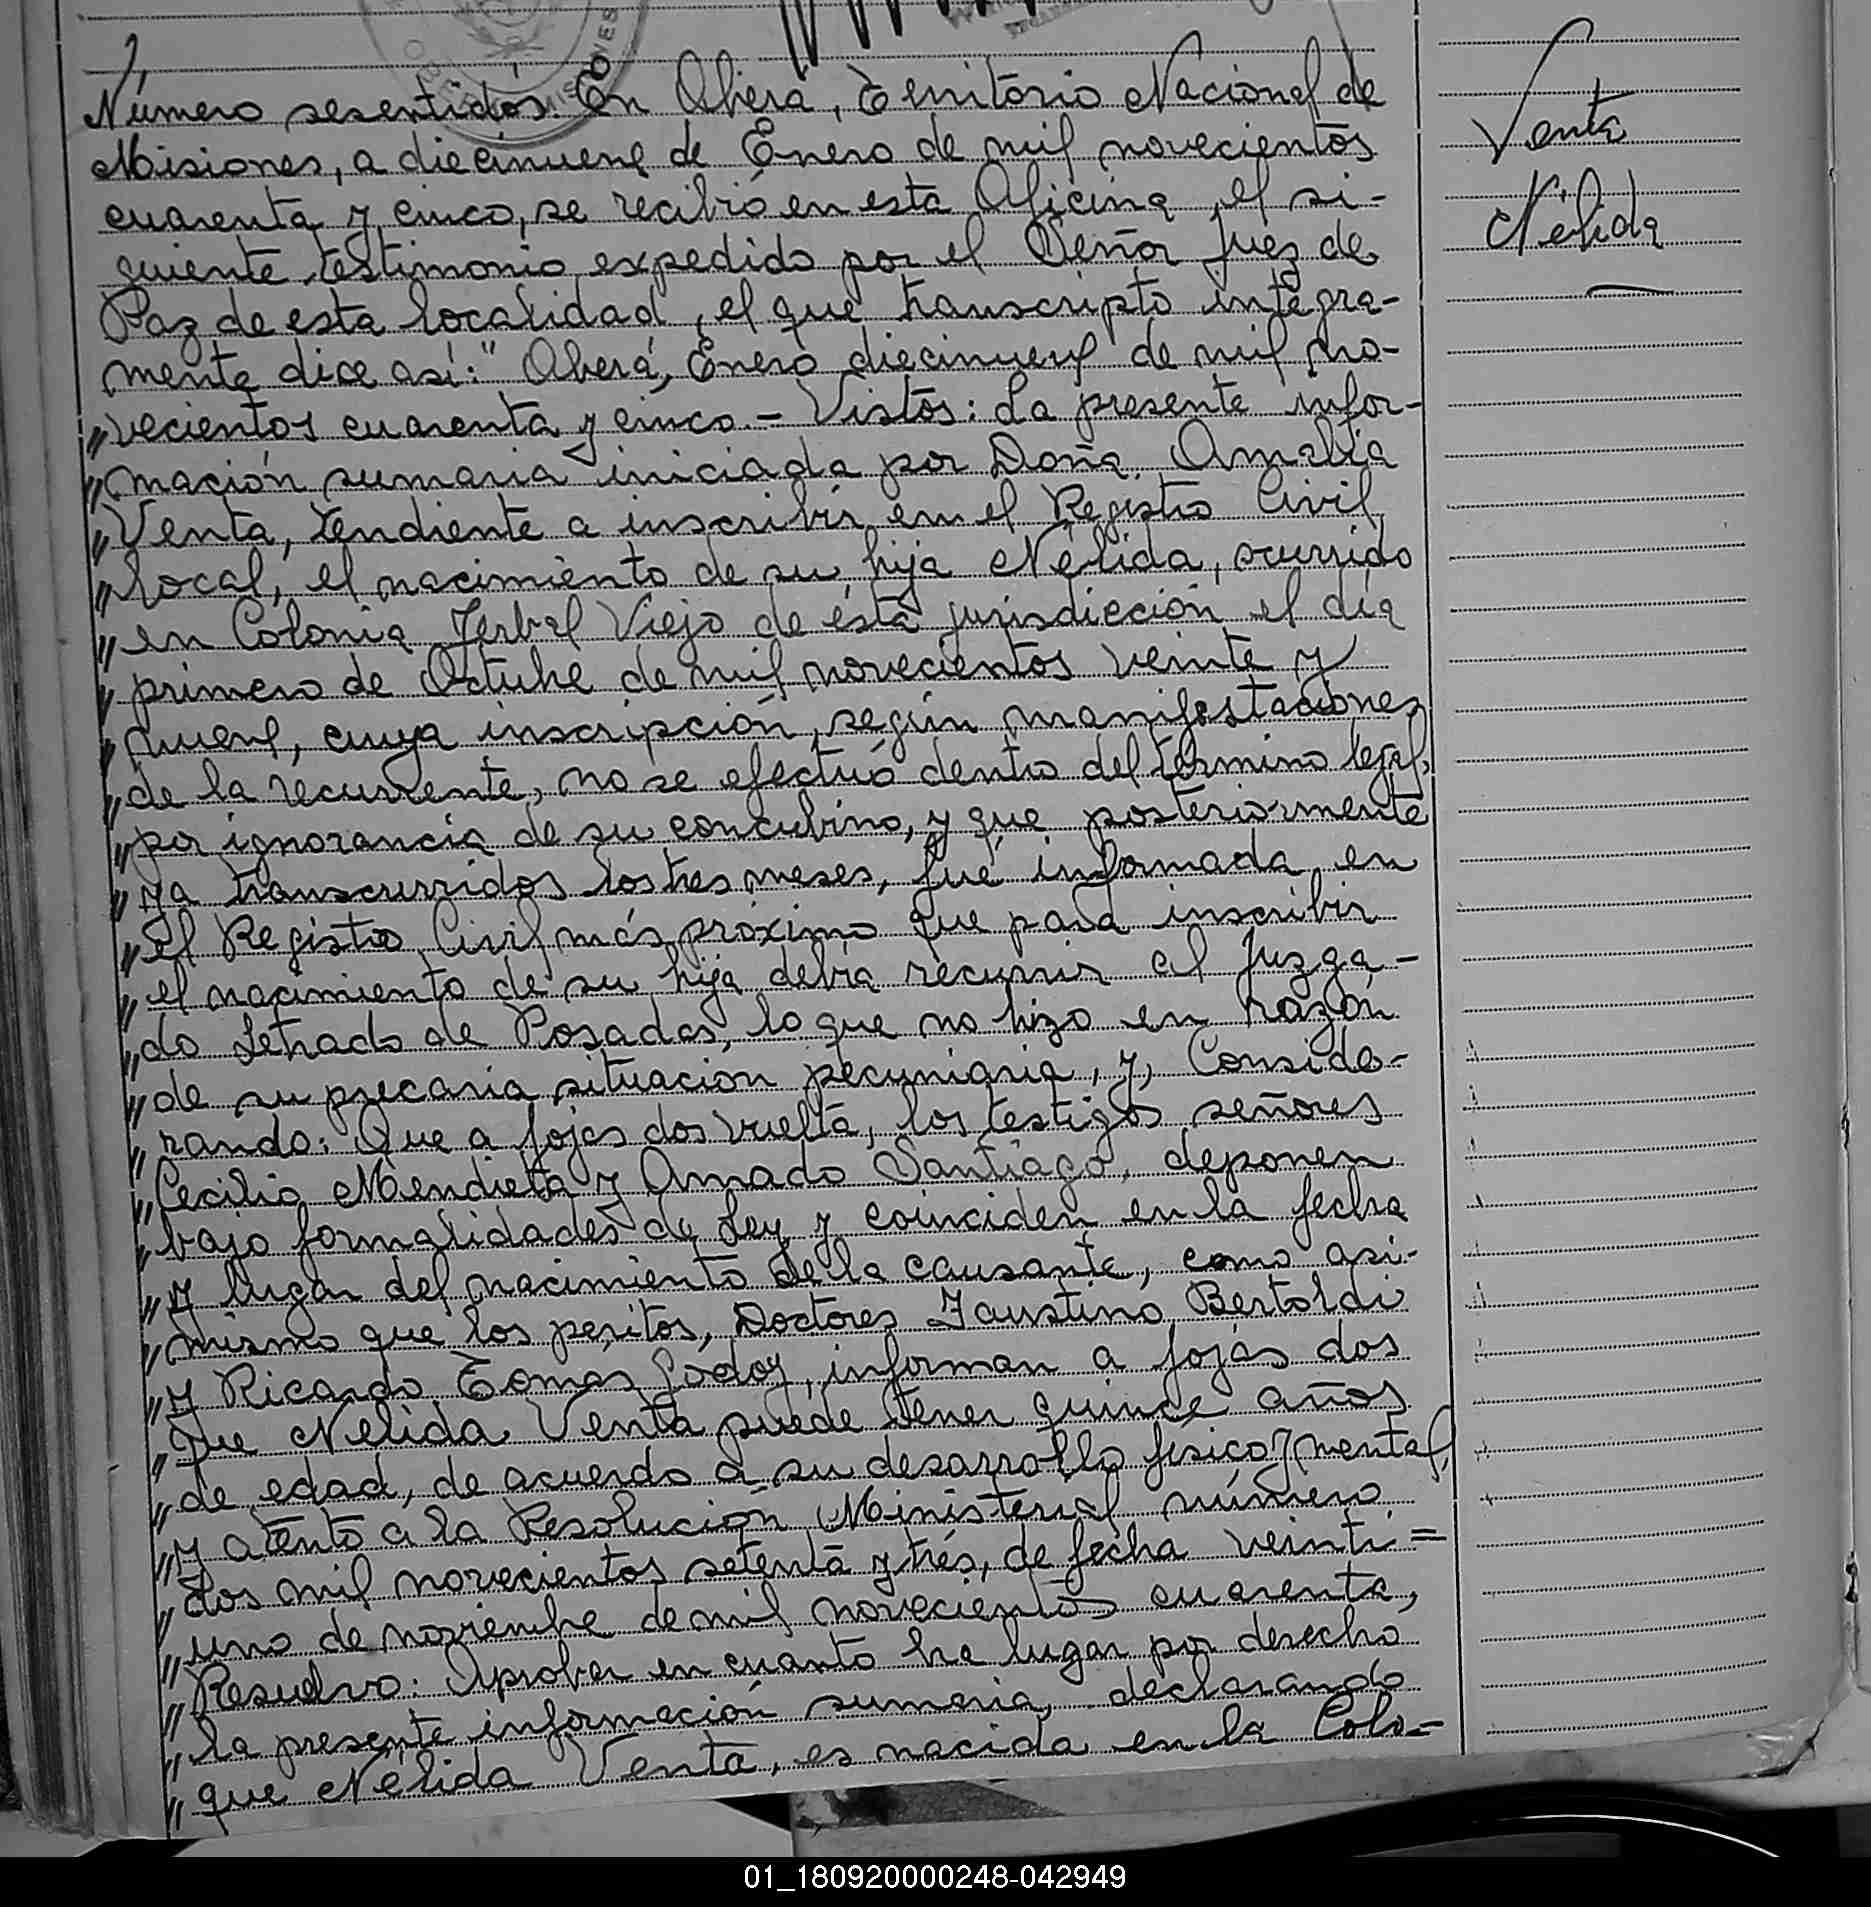 Número sesentidós. En Oberá, Territorio Nacional de
Misiones, a diecinueve de Enero de mil novecientos
cuarenta y cinco, se recibió en esta Oficina, el si-
guiente testimonio expedido por el Señor Juez de
Paz de esta localidad, el que transcripto integra-
mente dice así: "Oberá, Enero diecinueve de mil no-
"vecientos cuarenta y cinco.- Vistos: La presente infor-
"mación sumaria iniciada por Doña Amalia
"Venta, tendiente a inscribir en el Registro Civil
"local, el nacimiento de su hija Nélida, ocurrido
"en Colonia Yerbal Viejo de ésta jurisdicción el día
"primero de Octubre de mil novecientos veinte y
"nueve, cuya inscripción, según manifestaciones
"de la recurrente, no se efectuó dentro del término legal,
"por ignorancia de su concubino, y que posteriormente
"ya transcurridos los tres meses, fué informada en
"el Registro Civil más próximo que para inscribir
"el nacimiento de su hija debía recurrir al Juzga-
"do Letrado de Posadas, lo que no hizo en razón
"de su precaria situación pecuniaria, y, Conside-
"rando: Que a fojas dos vuelta, los testigos señores
"Cecilio Mendieta y Amado Santiago, deponen
"bajo formalidades de Ley y coinciden en la fecha
"y lugar del nacimiento de la causante, como asi-
"mismo que los peritos, Doctores Faustino Bertoldi
"y Ricardo Tomás Godoy, informan a fojas dos
"que Nélida Venta puede tener quince años
"de edad, de acuerdo a su desarrollo físico y mental,
"y atento a la Resolución Ministerial número
"dos mil novecientos setenta y trés, de fecha veinti=
"uno de noviembre de mil novecientos cuarenta,
"Resuelvo: Aprobar en cuanto ha lugar por derecho
"la presente información sumaria, declarando
"que Nélida Venta, es nacida en la Colo=
Venta
Nélida
01_180920000248-042949